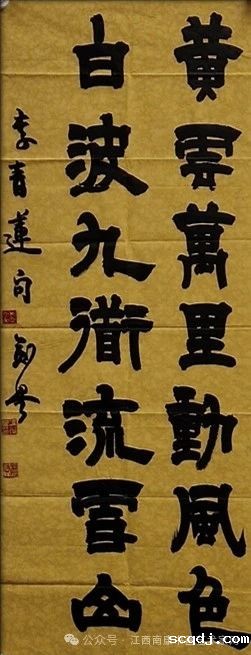 黃雲萬里動風色
白波九衜流雪山
李青蓮句
公众号·江西南唐
scqdj.com